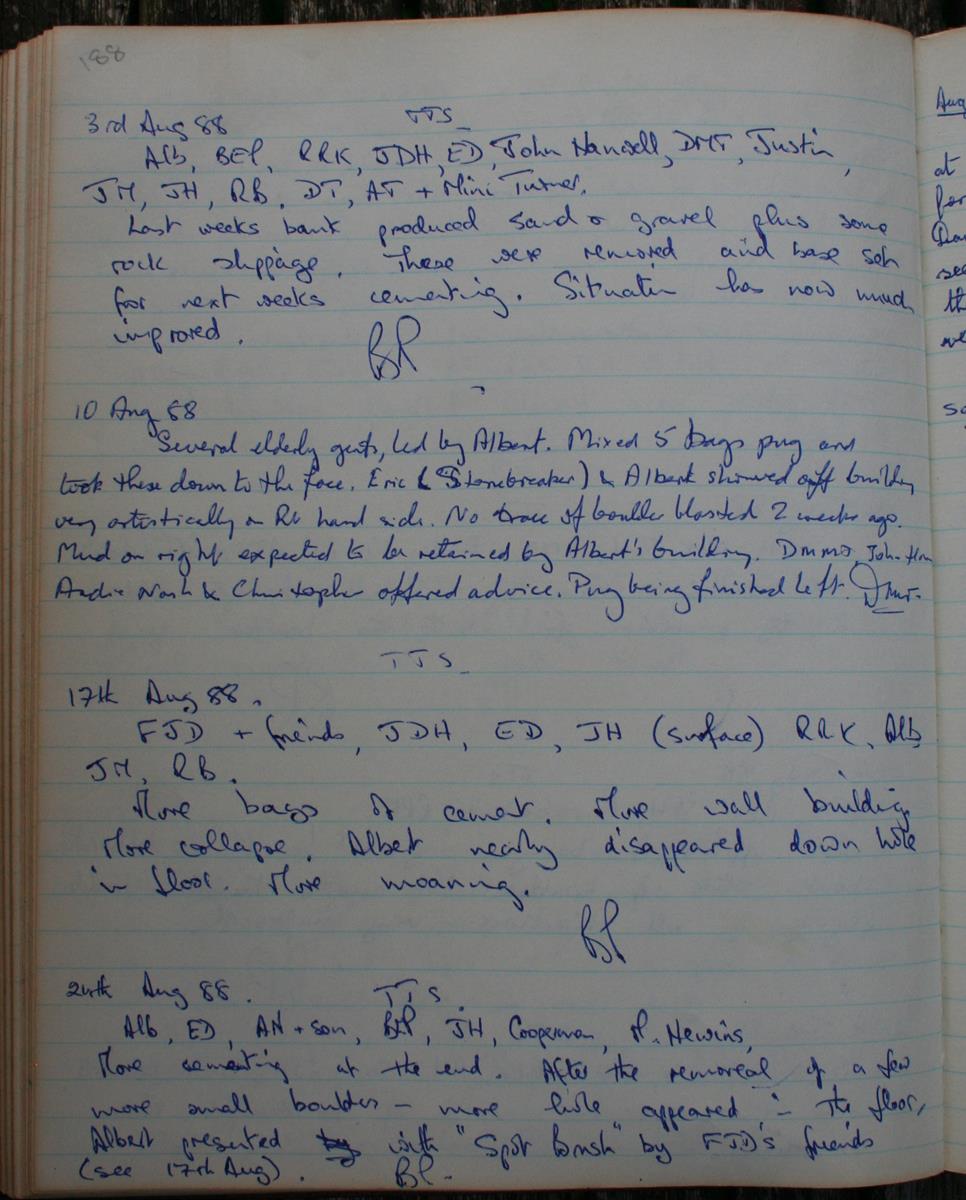 188
3rd Aug 88 TTS
Alb, BEP, RRK, JDH, ED, John Hanwell, DMT, Justin,
JM, JH, RB, DT, AT + Mini Turner.
Last weeks bank produced sand & gravel plus some
rock slippage. These were removed and base set
for next weeks cementing. Situation has now much
improved.
BP
10 Aug 88
Several elderly gents, led by Albert. Mixed 5 bags pug and
took these down to the face. Eric (Stonebreaker) & Albert showed off building
very artistically on RH hand side. No trace of boulder blasted 2 weeks ago.
Mud on right expected to be retained by Albert's building. John Han
Andie Nash & Christopher offered advice. Pug being finished left. DMT.
TTS
17th Aug 88.
FJD + friends, JDH, ED, JH (surface) RRK, Alb,
JM, RB.
More bags of cement. More wall building
More collapse. Albert nearly disappeared down hole
in floor. More moaning.
BP
24th Aug 88. TTS.
Alb, ED, AN + son, BEP, JH, Cooperman, P. Newins,
More cementing at the end. After the removal of a few
more small boulders – more hole appeared in the floor,
Albert presented with "Spot brush" by FJD's friends
(see 17th Aug). BP.
Aug
at
for
see
th
we
so